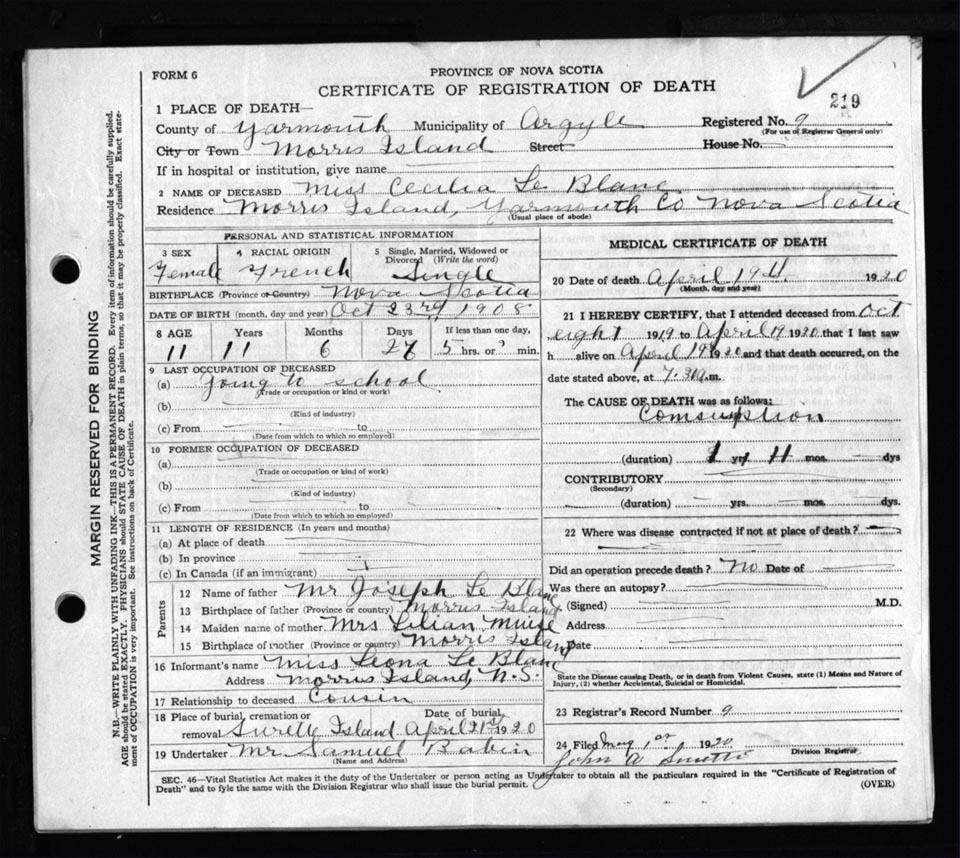 FORM 6
PROVINCE OF NOVA SCOTIA
CERTIFICATE OF REGISTRATION OF DEATH
219
1 PLACE OF DEATH—
County of Yarmouth Municipality of Argyle Registered No. 9
(For use of Registrar General only)
City or Town Morris Island Street House No.
If in hospital or institution, give name
2 NAME OF DECEASED Miss Cecilia Le Blanc
Residence Morris Island, Yarmouth Co Nova Scotia
(Usual place of abode)
PERSONAL AND STATISTICAL INFORMATION
3 SEX Female
4 RACIAL ORIGIN French
5 Single, Married, Widowed or Divorced (Write the word) Single
BIRTHPLACE (Province or Country) Nova Scotia
DATE OF BIRTH (month, day and year) Oct 23rd 1908
8 AGE Years Months Days If less than one day,
11 11 6 5 hrs. or ? min.
9 LAST OCCUPATION OF DECEASED
(a) Going to school
(Trade or occupation or kind or work)
(b)
(Kind of industry)
(c) From to
(Date from which to which so employed)
10 FORMER OCCUPATION OF DECEASED
(a)
(Trade or occupation or kind of work)
(b)
(Kind of industry)
(c) From to
(Date from which to which so employed)
11 LENGTH OF RESIDENCE (In years and months)
(a) At place of death
(b) In province
(c) In Canada (if an immigrant)
Parents
12 Name of father Mr Joseph Le Blanc
13 Birthplace of father (Province or country) Morris Island
14 Maiden name of mother Mrs Lilian Muise
15 Birthplace of mother (Province or country) Morris Island
16 Informant's name Miss Leona Le Blanc
Address Morris Island N.S.
17 Relationship to deceased Cousin
18 Place of burial, cremation or removal Surette Island Date of burial April 21st 1920
19 Undertaker Mr Samuel Babin
(Name and Address)
MEDICAL CERTIFICATE OF DEATH
20 Date of death April 19th 1920
(Month, day and year)
21 I HEREBY CERTIFY, that I attended deceased from Oct
eight 1919 to April 19 1920 that I last saw
h alive on April 19 1920 and that death occurred, on the
date stated above, at 7.30 a.m.
The CAUSE OF DEATH was as follows:
Comsuption
(duration) 1 yrs 11 mos. dys
CONTRIBUTORY
(Secondary)
(duration) yrs. mos. dys.
22 Where was disease contracted if not at place of death?
Did an operation precede death? No Date of
Was there an autopsy?
(Signed) M.D.
Address
Date
State the Disease causing Death, or in death from Violent Causes, state (1) Means and Nature of
Injury, (2) whether Accidental, Suicidal or Homicidal.
23 Registrar's Record Number 9
24 Filed May 1st 1920
John A Division Registrar
SEC. 46—Vital Statistics Act makes it the duty of the Undertaker or person acting as Undertaker to obtain all the particulars required in the "Certificate of Registration of
Death" and to fyle the same with the Division Registrar who shall issue the burial permit. (OVER)
MARGIN RESERVED FOR BINDING
N.B.—WRITE PLAINLY WITH UNFADING INK—THIS IS A PERMANENT RECORD. Every item of information should be carefully supplied.
AGE should be stated EXACTLY. PHYSICIANS should STATE CAUSE OF DEATH in plain terms, so that it may be properly classified. Exact state-
ment of OCCUPATION is very important. See instructions on back of Certificate.